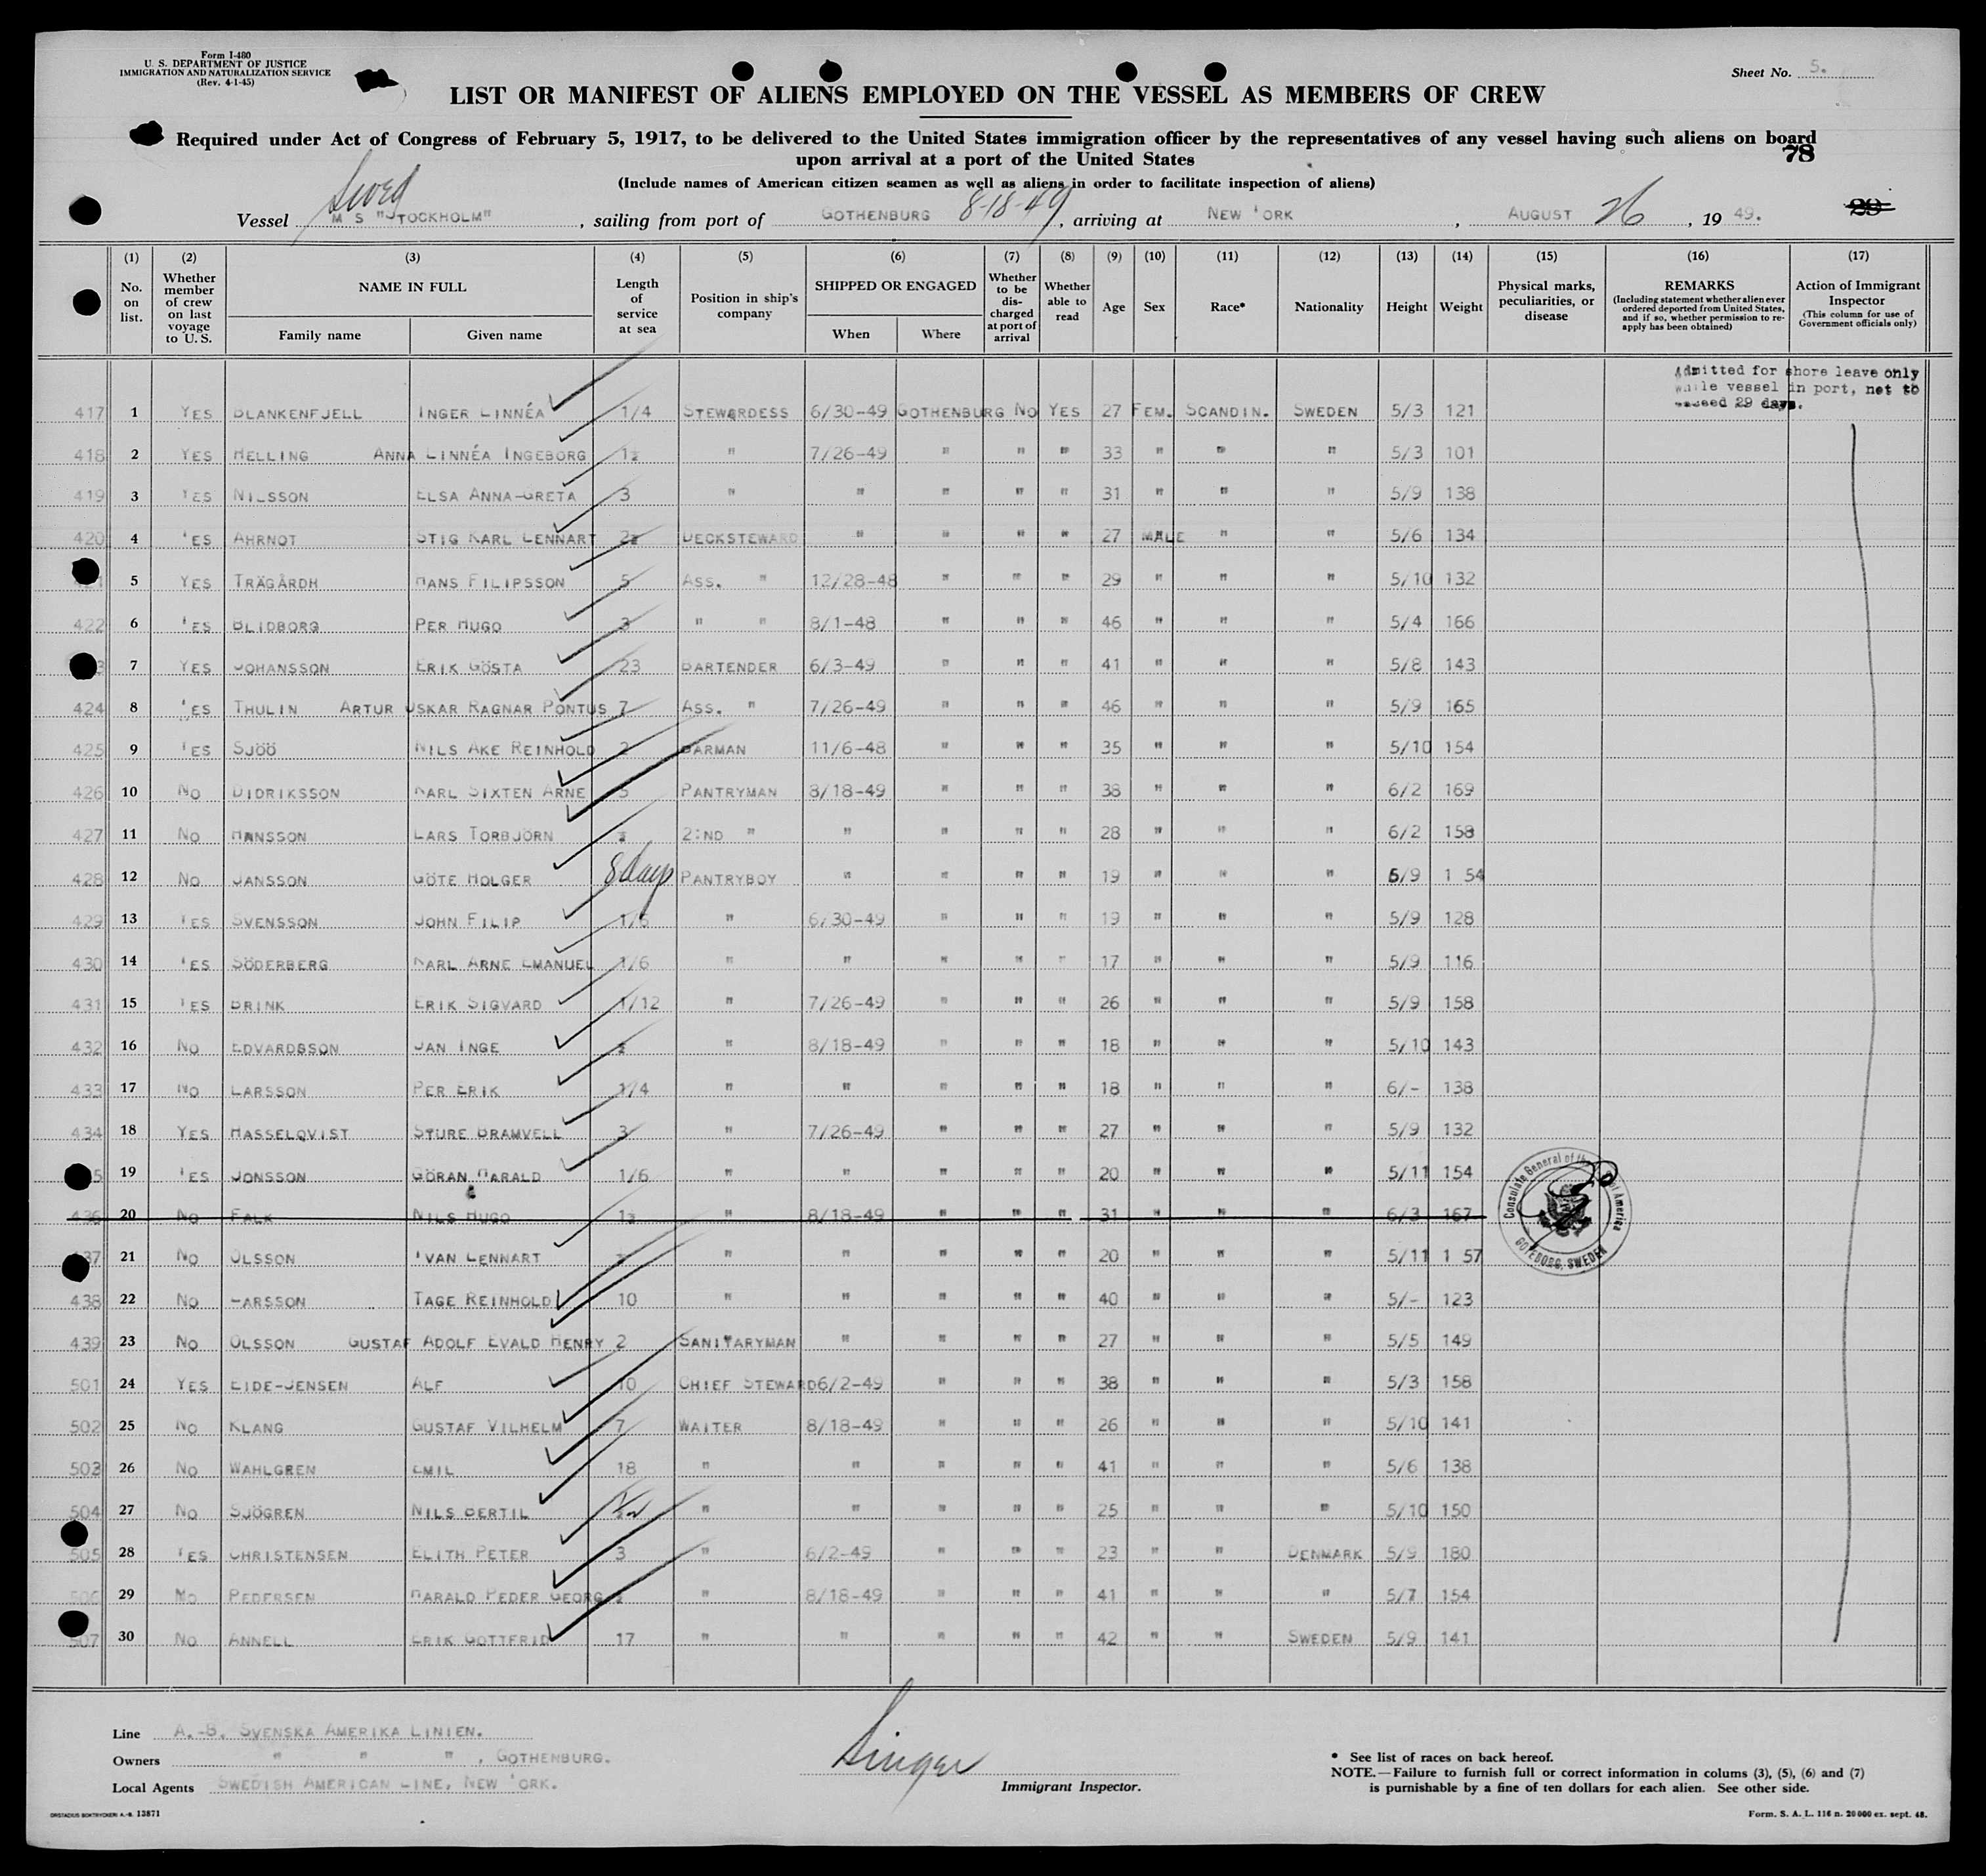 Form I-480
U. S. DEPARTMENT OF JUSTICE
IMMIGRATION AND NATURALIZATION SERVICE
(Rev. 4-1-45)
Sheet No. 5.
LIST OR MANIFEST OF ALIENS EMPLOYED ON THE VESSEL AS MEMBERS OF CREW
Required under Act of Congress of February 5, 1917, to be delivered to the United States immigration officer by the representatives of any vessel having such aliens on board
upon arrival at a port of the United States
78
(Include names of American citizen seamen as well as aliens in order to facilitate inspection of aliens)
Swed
Vessel M S "STOCKHOLM", sailing from port of GOTHENBURG 8-18-49, arriving at NEW YORK, AUGUST 26, 19 49.
29
(1) No. on list. (2) Whether member of crew on last voyage to U. S. (3) NAME IN FULL Family name Given name (4) Length of service at sea (5) Position in ship's company (6) SHIPPED OR ENGAGED When Where (7) Whether to be discharged at port of arrival (8) Whether able to read (9) Age (10) Sex (11) Race* (12) Nationality (13) Height (14) Weight (15) Physical marks, peculiarities, or disease (16) REMARKS (Including statement whether alien ever ordered deported from United States, and if so, whether permission to re-apply has been obtained) (17) Action of Immigrant Inspector (This column for use of Government officials only)
Admitted for shore leave only
while vessel in port, not to
exceed 29 days.
417 1 YES BLANKENFJELL INGER LINNÉA 1/4 STEWARDESS 6/30-49 GOTHENBURG NO YES 27 FEM. SCANDIN. SWEDEN 5/3 121
418 2 YES HELLING ANNA LINNÉA INGEBORG 1½ " 7/26-49 " " " 33 " " " 5/3 101
419 3 YES NILSSON ELSA ANNA-GRETA 3 " " " " " 31 " " " 5/9 138
420 4 YES AHRNOT STIG KARL LENNART 2½ DECKSTEWARD " " " " 27 MALE " " 5/6 134
421 5 YES TRÄGÅRDH HANS FILIPSSON 5 ASS. " 12/28-48 " " " 29 " " " 5/10 132
422 6 YES BLIDBORG PER HUGO 3 " " 8/1-48 " " " 46 " " " 5/4 166
3 7 YES JOHANSSON ERIK GÖSTA 23 BARTENDER 6/3-49 " " " 41 " " " 5/8 143
424 8 YES THULIN ARTUR OSKAR RAGNAR PONTUS 7 ASS. " 7/26-49 " " " 46 " " " 5/9 165
425 9 YES SJÖÖ NILS AKE REINHOLD 2 BARMAN 11/6-48 " " " 35 " " " 5/10 154
426 10 NO DIDRIKSSON KARL SIXTEN ARNE 5 PANTRYMAN 8/18-49 " " " 38 " " " 6/2 169
427 11 NO HANSSON LARS TORBJÖRN ½ 2:ND " " " " " 28 " " " 6/2 158
428 12 NO JANSSON GÖTE HOLGER 8 days PANTRYBOY " " " " 19 " " " 5/9 1 54
429 13 YES SVENSSON JOHN FILIP 1/6 " 6/30-49 " " " 19 " " " 5/9 128
430 14 YES SÖDERBERG KARL ARNE EMANUEL 1/6 " " " " " 17 " " " 5/9 116
431 15 YES BRINK ERIK SIGVARD 1/12 " 7/26-49 " " " 26 " " " 5/9 158
432 16 NO EDVARDSSON JAN INGE ½ " 8/18-49 " " " 18 " " " 5/10 143
433 17 NO LARSSON PER ERIK 1/4 " " " " " 18 " " " 6/- 138
434 18 YES HASSELQVIST STURE BRAMVELL 3 " 7/26-49 " " " 27 " " " 5/9 132
5 19 YES JONSSON GÖRAN HARALD 1/6 " " " " " 20 " " " 5/11 154
436 20 NO FALK NILS HUGO 1½ " 8/18-49 " " " 31 " " " 6/3 167
37 21 NO OLSSON IVAN LENNART " " " " " 20 " " " 5/11 1 57
438 22 NO LARSSON TAGE REINHOLD 10 " " " " " 40 " " " 5/- 123
439 23 NO OLSSON GUSTAF ADOLF EVALD HENRY 2 SANITARYMAN " " " " 27 " " " 5/5 149
501 24 YES EIDE-JENSEN ALF 10 CHIEF STEWARD 6/2-49 " " " 38 " " " 5/3 158
502 25 NO KLANG GUSTAF VILHELM 7 WAITER 8/18-49 " " " 26 " " " 5/10 141
503 26 NO WAHLGREN EMIL 18 " " " " " 41 " " " 5/6 138
504 27 NO SJÖGREN NILS BERTIL ½ " " " " " 25 " " " 5/10 150
505 28 YES CHRISTENSEN ELITH PETER 3 " 6/2-49 " " " 23 " " DENMARK 5/9 180
506 29 NO PEDERSEN HARALD PEDER GEORG ½ " 8/18-49 " " " 41 " " " 5/7 154
507 30 NO ANNELL ERIK GOTTFRID 17 " " " " " 42 " " SWEDEN 5/9 141
Consulate General of the of America
GÖTEBORG, SWEDEN
Line A.-B. SVENSKA AMERIKA LINIEN.
Owners " " " , GOTHENBURG.
Local Agents SWEDISH AMERICAN LINE, NEW YORK.
Singer
Immigrant Inspector.
* See list of races on back hereof.
NOTE.—Failure to furnish full or correct information in colums (3), (5), (6) and (7)
is punishable by a fine of ten dollars for each alien. See other side.
ORSTADIUS BOKTRYCKERI A.-B. 13871
Form. S. A. L. 116 n. 20 000 ex. sept. 48.